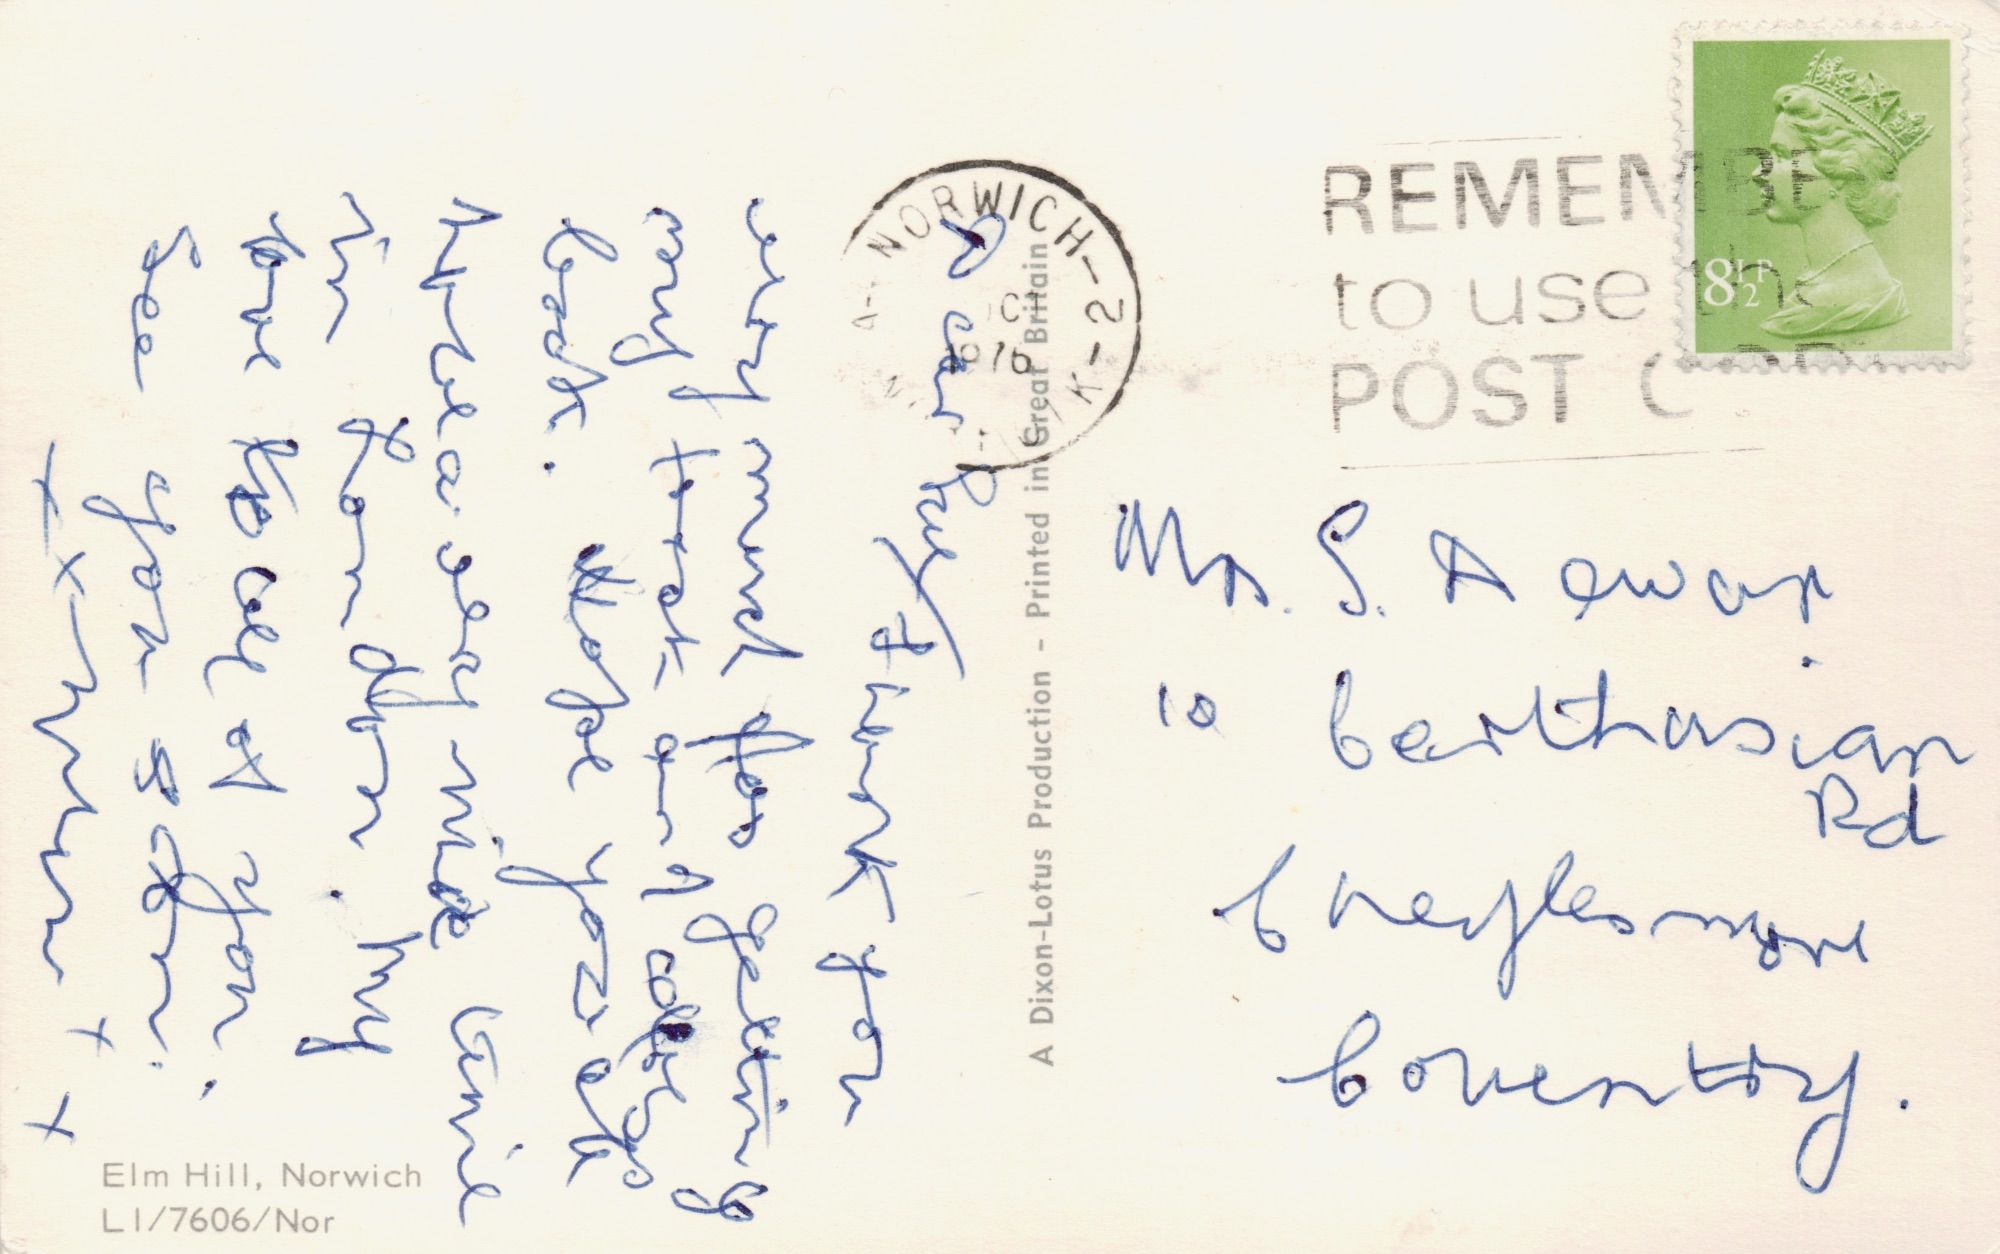 NORWICH-2
1976
REMEMBE
to use the
POST
8½P
Dear
Thank you
very much for getting
my
book. Hope you all
have a very nice time
in London. My
love to all of you.
See you soon.
x x Mum x x
A Dixon-Lotus Production - Printed in Great Britain
Mrs. S. Dewar
10 Carthusian
Rd
Cheylesmore
Coventry.
Elm Hill, Norwich
L1/7606/Nor